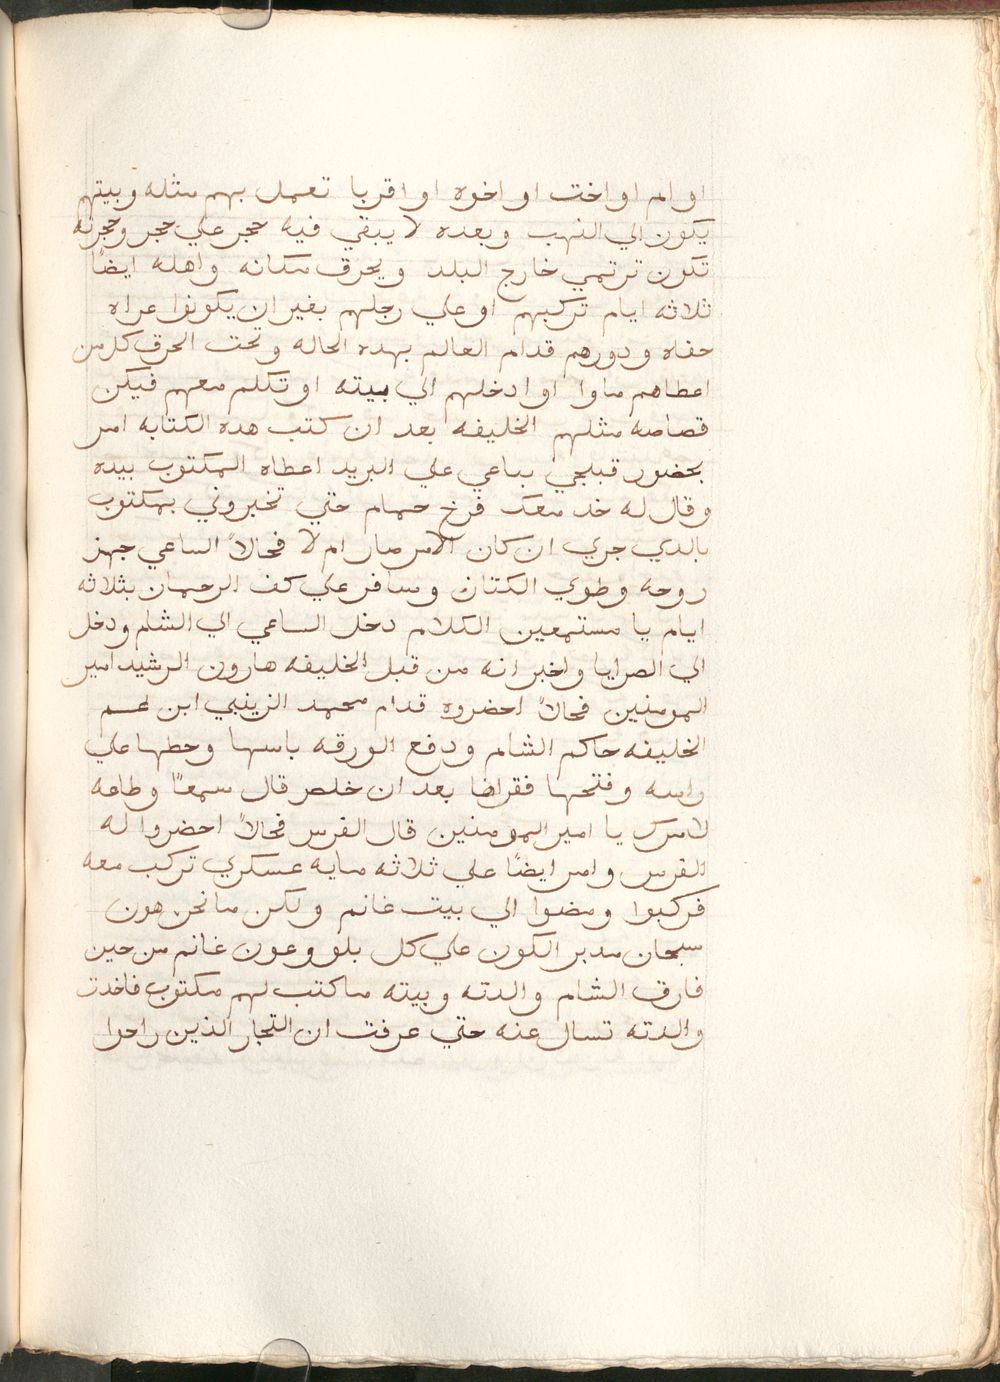 او ام او اخت او اخوه او اقربا تعمل بهم مثله وبيتهم
يكون الي النهب وبعده لا يبقي فيه حجر علي حجر وحجرته
تكون ترتمي خارج البلد ويحرق مكانه واهله ايضاً
ثلاثه ايام تركبهم او علي رجلهم بغير ان يكونوا عراه
حفاه ودورهم قدام العالم بهده الحاله وتحت الحرق كل من
اعطاهم ماوا او ادخلهم الي بيته او تكلم معهم فيكن
قصاصه مثلهم الخليفه بعد ان كتب هده الكتابه امر
بحضور قبلجي بباعي علي البريد اعطاه المكتوب بيده
وقال له خد معك فرخ حمام حتي تخبروني بمكتوب
بالدي جري ان كان الامر صار ام لا فحالاً الساعي جهز
روحه وطوي الكتان وسافر علي كف الرحمان بثلاثه
ايام يا مستمعين الكلام دخل الساعي الي الشام ودخل
الي الصرايا واخبر انه من قبل الخليفه هارون الرشيد امير
المومنين فحالاً احضروه قدام محمد الزينبي ابن عم
الخليفه حاكم الشام ودفع الورقه باسها وحطها علي
راسه وفتحها فقراها بعد ان خلص قال سمعاً وطاعه
لامرك يا امير المومنين قال الفرس فحالاً احضروا له
الفرس وامر ايضاً علي ثلاثه مايه عسكري تركب معه
فركبوا ومضوا الي بيت غانم ولكن ما نحن هون
سبحان مدبر الكون علي كل بلو وعون غانم من حين
فارق الشام والدته وبيته ما كتب لهم مكتوب فاخدت
والدته تسال عنه حتي عرفت ان التجار الذين راحوا